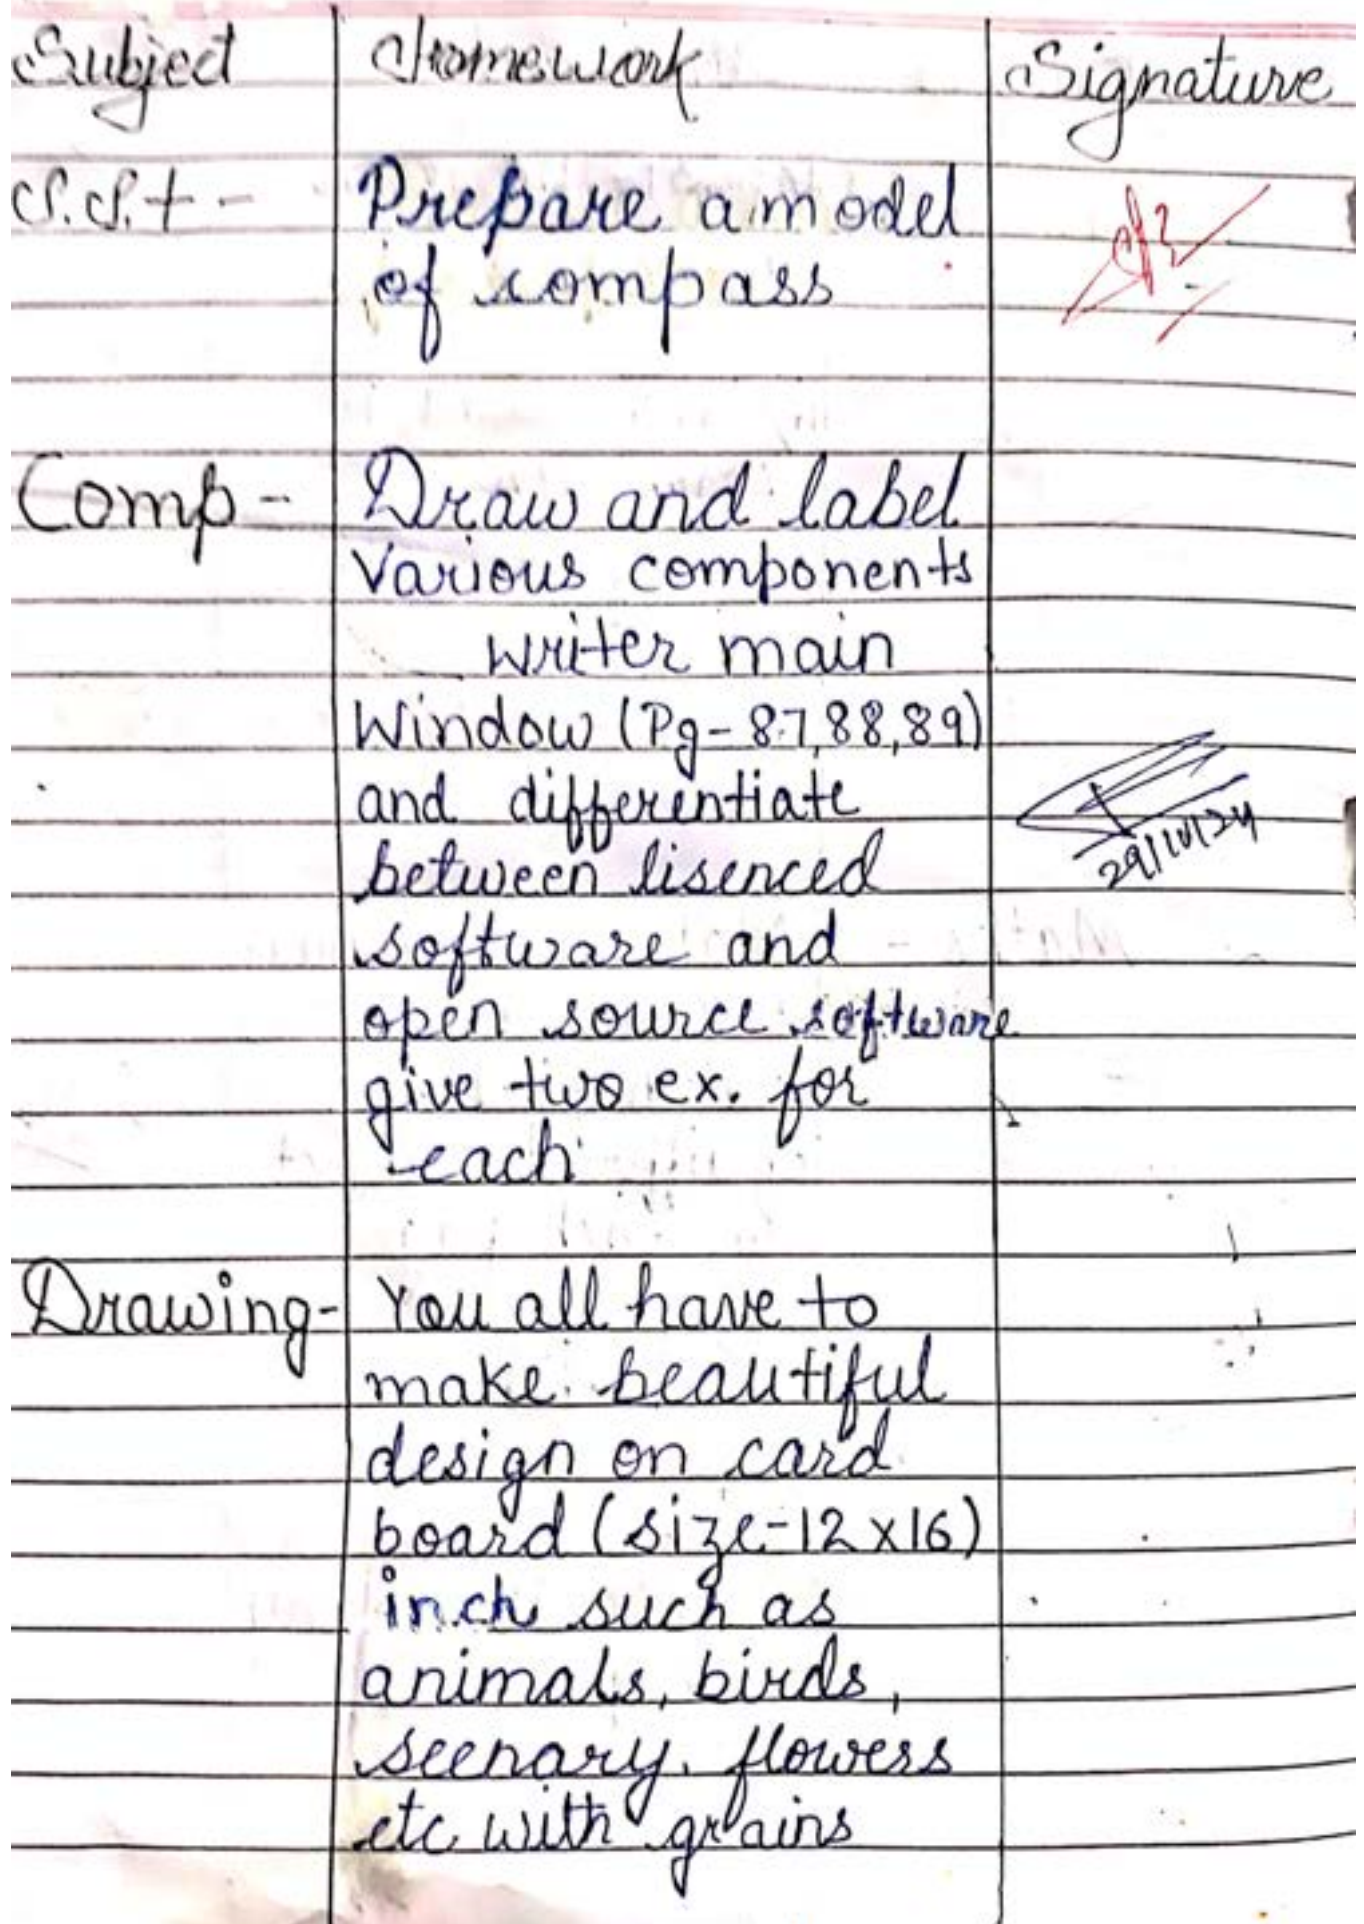 Subject Homework Signature
S.S.t - Prepare a model
of compass
Comp - Draw and label
various components
writer main
Window (Pg - 87,88,89)
and differentiate
between lisenced
29/10/24
software and
open source software
give two ex. for
each
Drawing - You all have to
make beautiful
design on card
board (size-12x16)
inch such as
animals, birds,
seenary, flowers
etc with grains